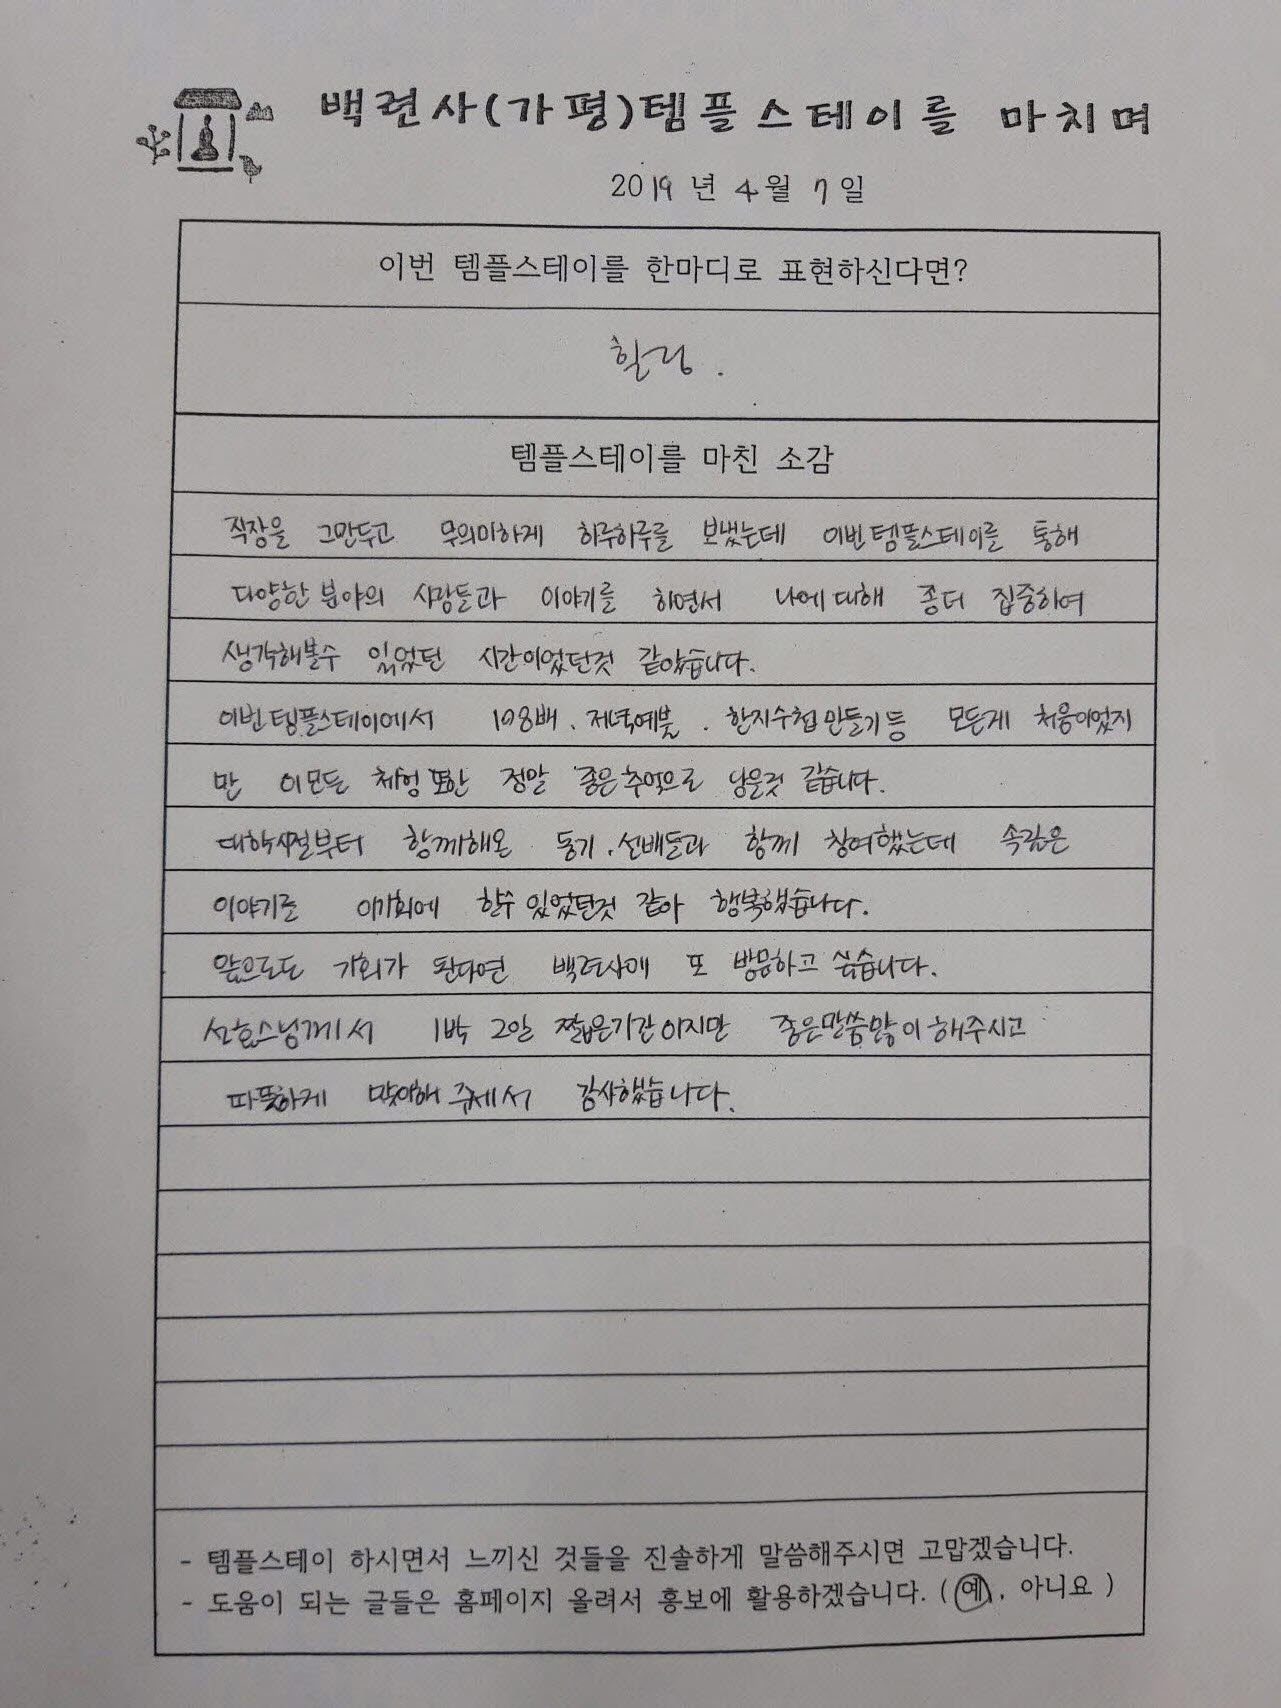 백련사(가평)템플스테이를 마치며
2019 년 4월 7일
이번 템플스테이를 한마디로 표현하신다면?
힐링.
템플스테이를 마친 소감
직장을 그만두고 무의미하게 하루하루를 보냈는데 이번템플스테이를 통해
다양한 분야의 사람들과 이야기를 하면서 나에대해 좀더 집중하여
생각해볼수 있었던 시간이었던것 같았습니다.
이번템플스테이에서 108배, 저녁예불, 한지수첩만들기등 모든게 처음이었지
만 이모든 체험또한 정말 좋은추억으로 남을것 같습니다.
대학시절부터 함께해온 동기, 선배들과 함께 참여했는데 속깊은
이야기로 이기회에 할수 있었던것 같아 행복했습니다.
앞으로도 기회가 된다면 백련사에 또 방문하고 싶습니다.
선효스님께서 1박 2일 짧은기간이지만 좋은말씀많이 해주시고
따뜻하게 맞이해 주셔서 감사했습니다.
- 템플스테이 하시면서 느끼신 것들을 진솔하게 말씀해주시면 고맙겠습니다.
- 도움이 되는 글들은 홈페이지 올려서 홍보에 활용하겠습니다. ( 예, 아니요 )